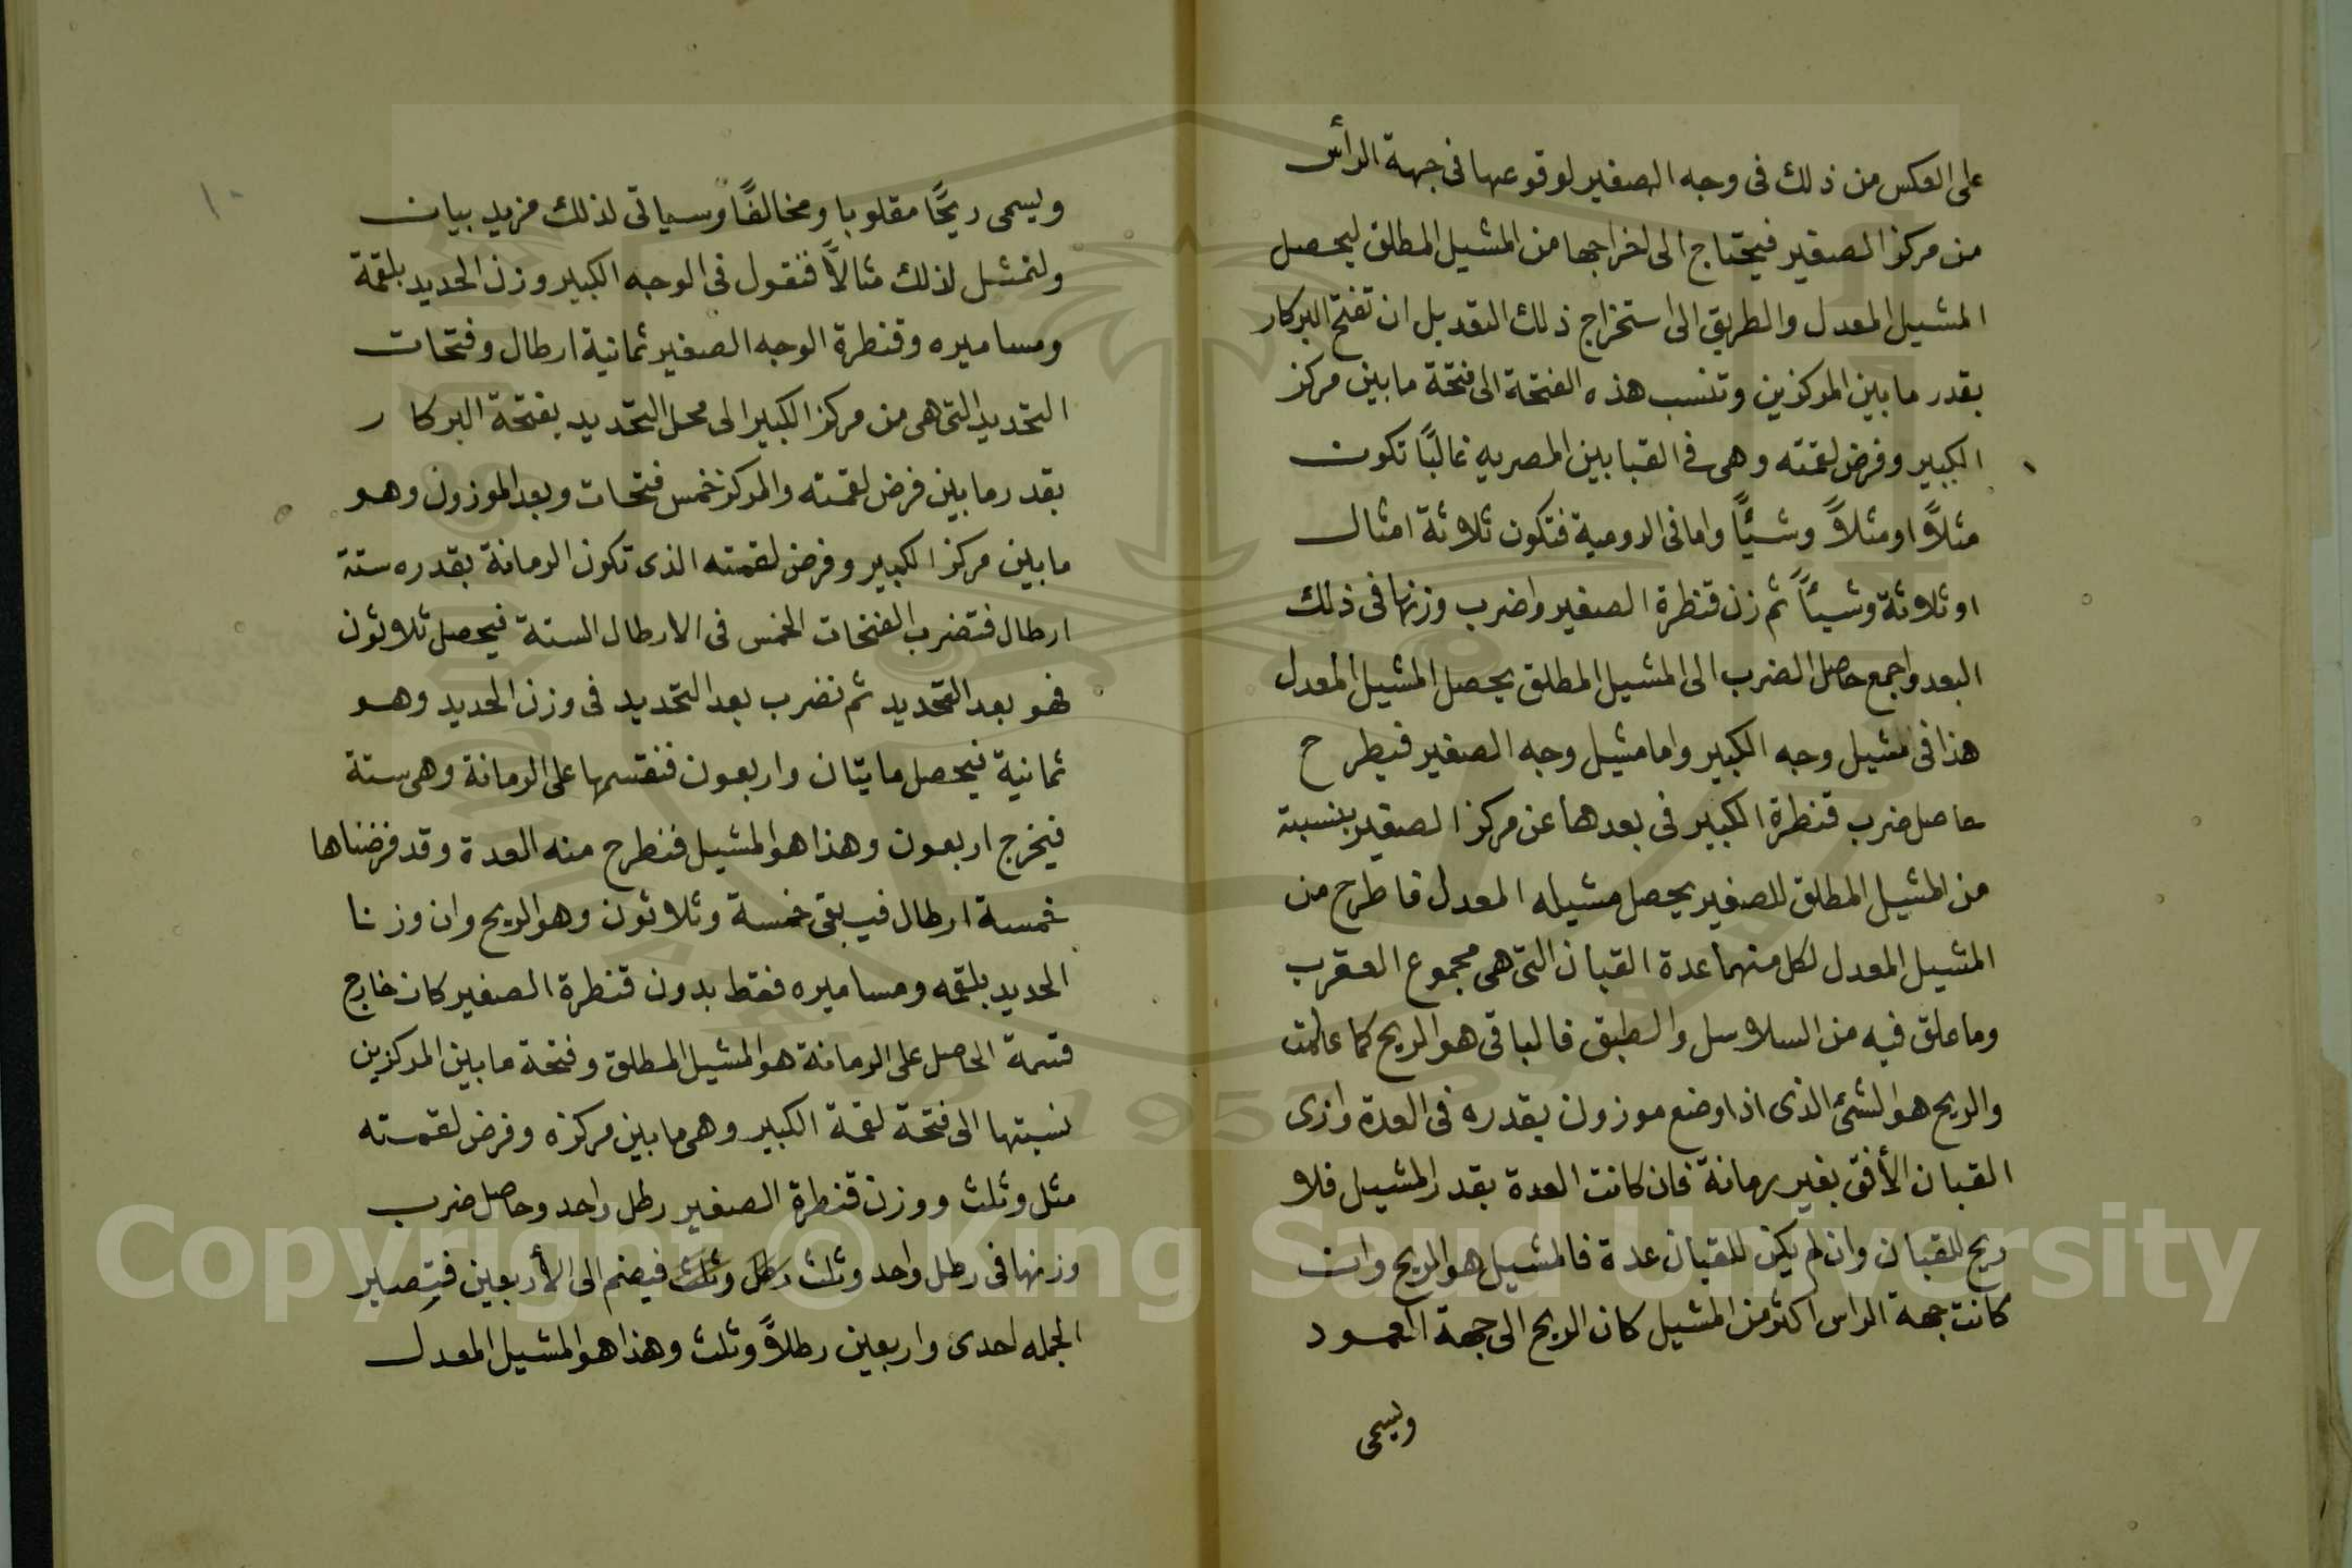 على العكس من ذلك فى وجه الصغير لوقوعها فى جهة الرأس
من مركز الصغير فيحتاج الى اخراجها من المشيل المطلق ليحصل
المشيل المعدل والطريق الى استخراج ذلك التعديل ان تفتح البركار
بقدر ما بين المركزين وتنسب هذه الفتحة الى فتحة ما بين مركز
الكبير وفرض لقمته وهى فى القبابين المصريه غالبًا تكون
مثلاً او مثلاً وشيًا واما فى الرومية فتكون ثلاثة امثال
او ثلاثة وشيئاً ثم زن قنطرة الصغير واضرب وزنها فى ذلك
البعد واجمع حاصل الضرب الى المشيل المطلق يحصل المشيل المعدل
هذا فى مشيل وجه الكبير واما مشيل وجه الصغير فيطرح
حاصل ضرب قنطرة الكبير فى بعدها عن مركز الصغير بنسبته
من المشيل المطلق للصغير يحصل مشيله المعدل فاطرح من
المشيل المعدل لكل منهما عدة القبان التى هى مجموع العقرب
وما علق فيه من السلاسل والطبق فالباقى هو الريح كما علمت
والريح هو الشئ الذى اذا وضع موزون بقدره فى العدة وازى
القبان الأفق بغير رمانة فان كانت العدة بقدر المشيل فلا
ريح للقبان وان لم يكن للقبان عدة فالمشيل هو الريح وان
كانت جهة الراس اكثر من المشيل كان الريح الى جهة العمود
ويسمى
١٠
ويسمى ريحًا مقلوبا ومخالفًا وسياتى لذلك مزيد بيان
ولنمثل لذلك مثالاً فنقول فى الوجه الكبير وزن الحديد بلقمة
ومساميره وقنطرة الوجه الصغير ثمانية ارطال وفتحات
التحديد التى هى من مركز الكبير الى محل التحديد بفتحة البركار
بقدر ما بين فرض لقمته والمركز خمس فتحات وبعد الموزون وهو
ما بين مركز الكبير وفرض لقمته الذى تكون الرمانة بقدره ستة
ارطال فتضرب الفتحات الخمس فى الارطال الستة فيحصل ثلاثون
فهو بعد التحديد ثم نضرب بعد التحديد فى وزن الحديد وهو
ثمانية فيحصل مايتان واربعون فنقسمها على الرمانة وهى ستة
فيخرج اربعون وهذا هو المشيل فنطرح منه العدة وقد فرضناها
خمسة ارطال فيبقى خمسة وثلاثون وهو الريح وان وزنا
الحديد بلقمه ومساميره فقط بدون قنطرة الصغير كان خارج
قسمة الحاصل على الرمانة هو المشيل المطلق وفتحة ما بين المركزين
نسبتها الى فتحة لقمة الكبير وهى ما بين مركزه وفرض لقمته
مثل وثلث ووزن قنطرة الصغير رطل واحد وحاصل ضرب
وزنها فى رطل واحد وثلث رطل وثلث فيضم الى الأربعين فتصير
الجمله احدى واربعين رطلاً وثلث وهذا هو المشيل المعدل
Copyright © King Saud University
1957